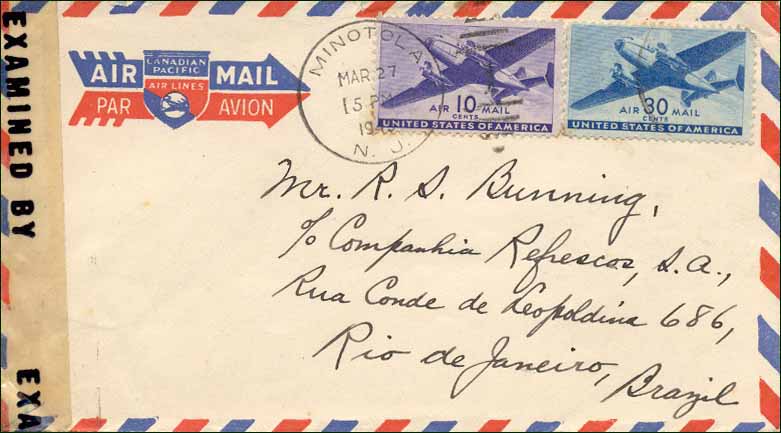 EXAMINED BY
EXA
AIR MAIL
CANADIAN
PACIFIC
AIR LINES
PAR AVION
MINOTOLA
MAR 27
5 PM
19
N. J.
AIR 10 MAIL
CENTS
UNITED STATES OF AMERICA
AIR 30 MAIL
CENTS
UNITED STATES OF AMERICA
Mr. R. S. Bunning,
c/o Companhia Refrescos, S.A.,
Rua Conde de Leopoldina 686,
Rio de Janeiro,
Brazil